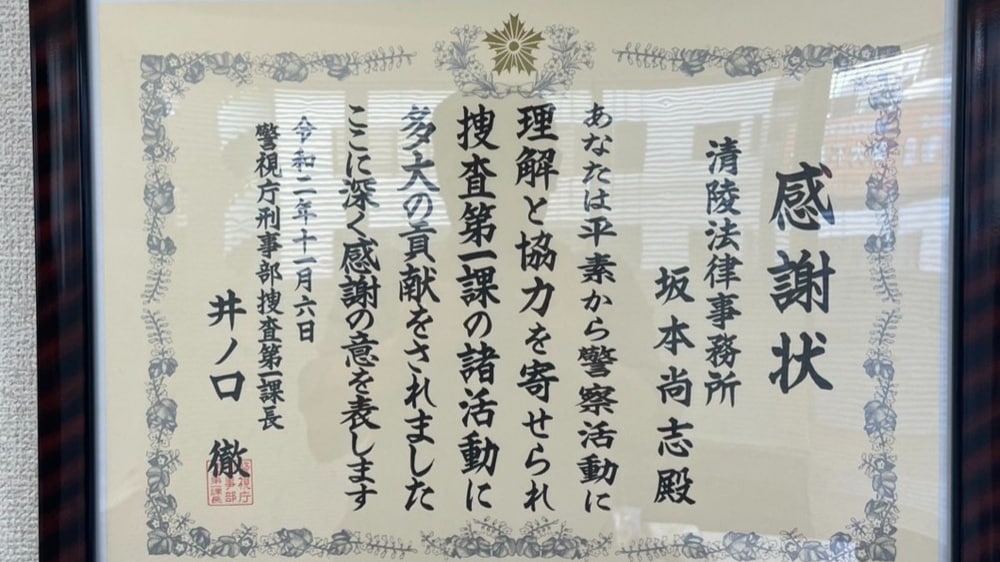 感謝状
清陵法律事務所
坂本尚志殿
あなたは平素から警察活動に
理解と協力を寄せられ
捜査第一課の諸活動に
多大の貢献をされました
ここに深く感謝の意を表します
令和二年十一月六日
警視庁刑事部捜査第一課長
井ノ口 徹